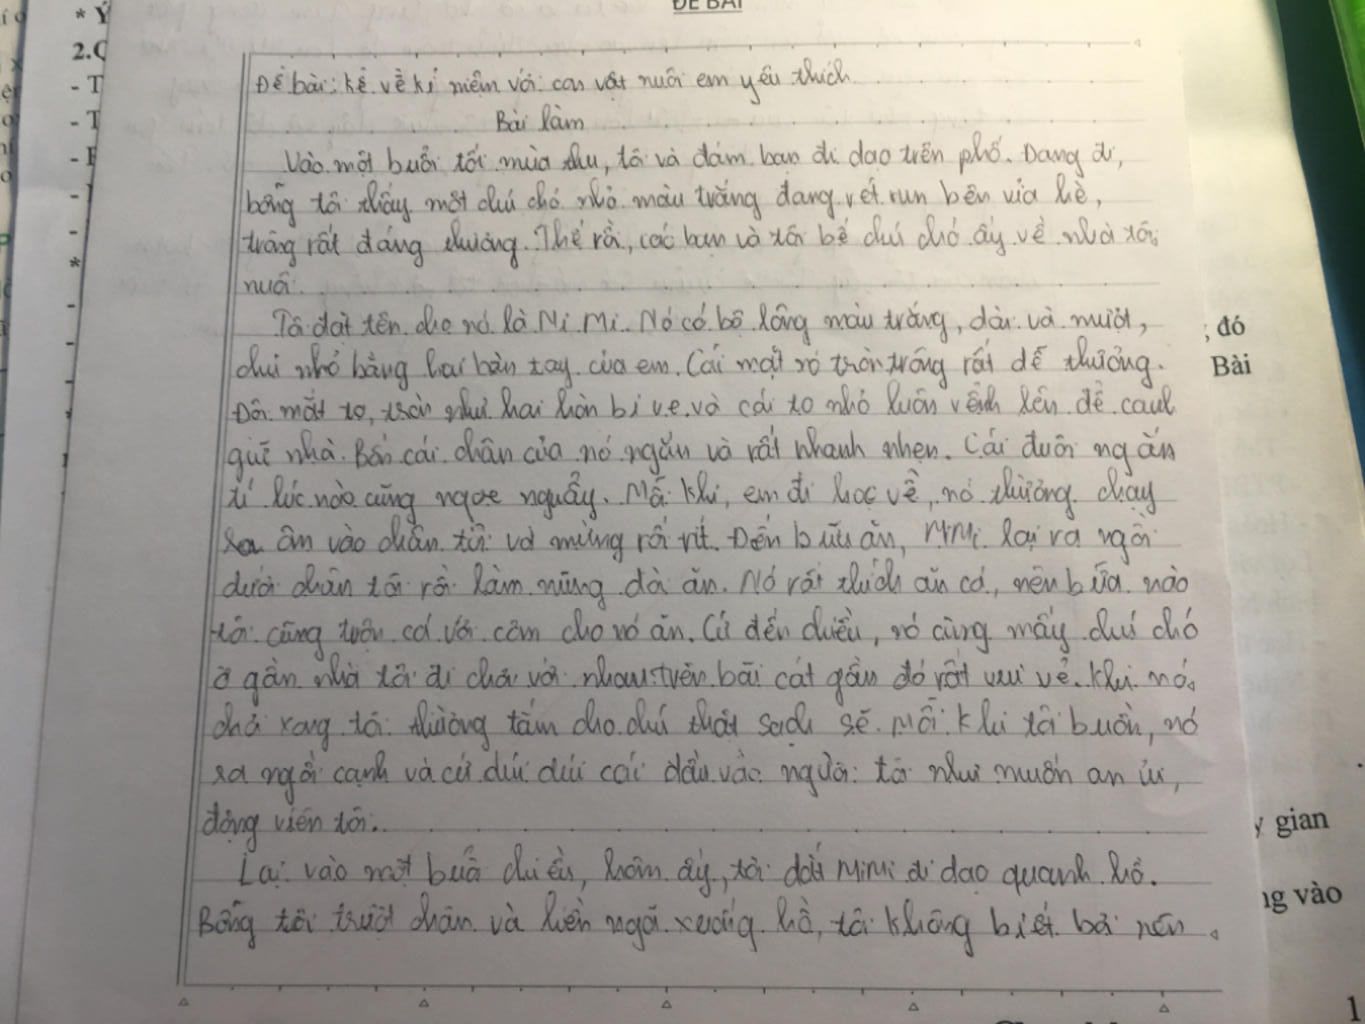 ĐỀ BÀI
* Ý
2.C
- T
- T
Đề bài: kể về kỉ niệm với con vật nuôi em yêu thích
Bài làm
Vào một buổi tối mùa thu, tôi và đám bạn đi dạo trên phố. Đang đi,
bỗng tôi thấy một chú chó nhỏ màu trắng đang rét run bên vỉa hè,
trông rất đáng thương. Thế rồi, các bạn và tôi bế chú chó ấy về nhà tôi
nuôi.
Tôi đặt tên cho nó là Mi Mi. Nó có bộ lông màu trắng, dài và mượt,
chui nhỏ bằng hai bàn tay của em. Cái mặt nó tròn trông rất dễ thưởng.
Đôi mắt to, tròn như hai hòn bi ve và cái to nhỏ luôn vểnh lên để canh
giữ nhà. Bốn cái chân của nó ngắn và rất nhanh nhẹn. Cái đuôi ngắn
tí lúc nào cũng ngoe nguẩy. Mỗi khi, em đi học về, nó thường chạy
ra ôm vào chân tôi và mừng rối rít. Đến bữu ăn, MiMi lại ra ngồi
dưới chân tôi rồi làm nũng đòi ăn. Nó rất thích ăn cá, nên bữa nào
tôi cũng trộn cá với cơm cho nó ăn. Cứ đến chiều, nó cùng mấy chú chó
ở gần nhà tôi đi chơi với nhau trên bãi cát gần đó rất vui vẻ. Khi nó
chơi xong tôi thường tắm cho chú thật sạch sẽ. Mỗi khi tôi buồn, nó
ra ngồi cạnh và cứ dúi dúi cái đầu vào người tôi như muốn an ủi,
động viên tôi.
Lại vào một buổi chiều, hôm ấy, tôi dắt MiMi đi dạo quanh hồ.
Bỗng tôi trượt chân và liền ngã xuống hồ, tôi không biết bơi nên
; đó
Bài
gian
ng vào
1